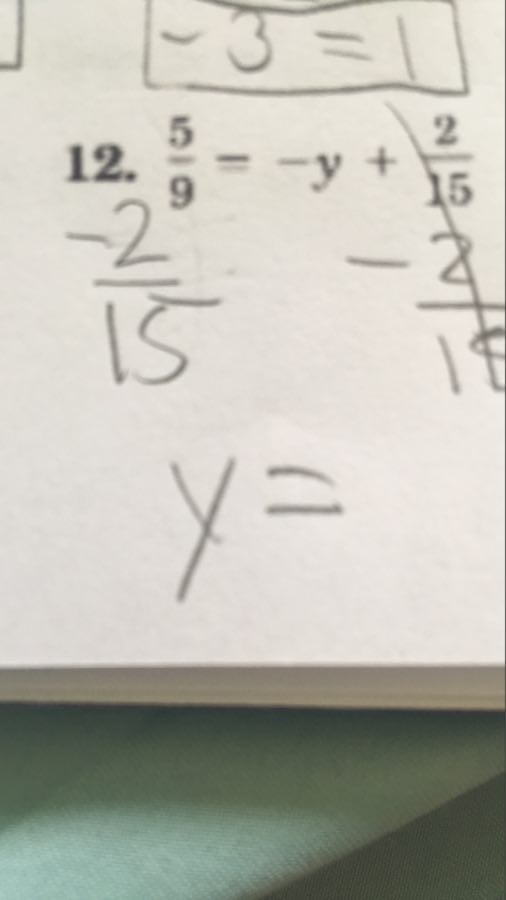 -3 = 1
12. 5/9 = -y + 2/15
-2/15 -2/15
y =